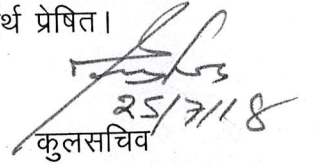 र्थ प्रेषित।
25/7/18
कुलसचिव